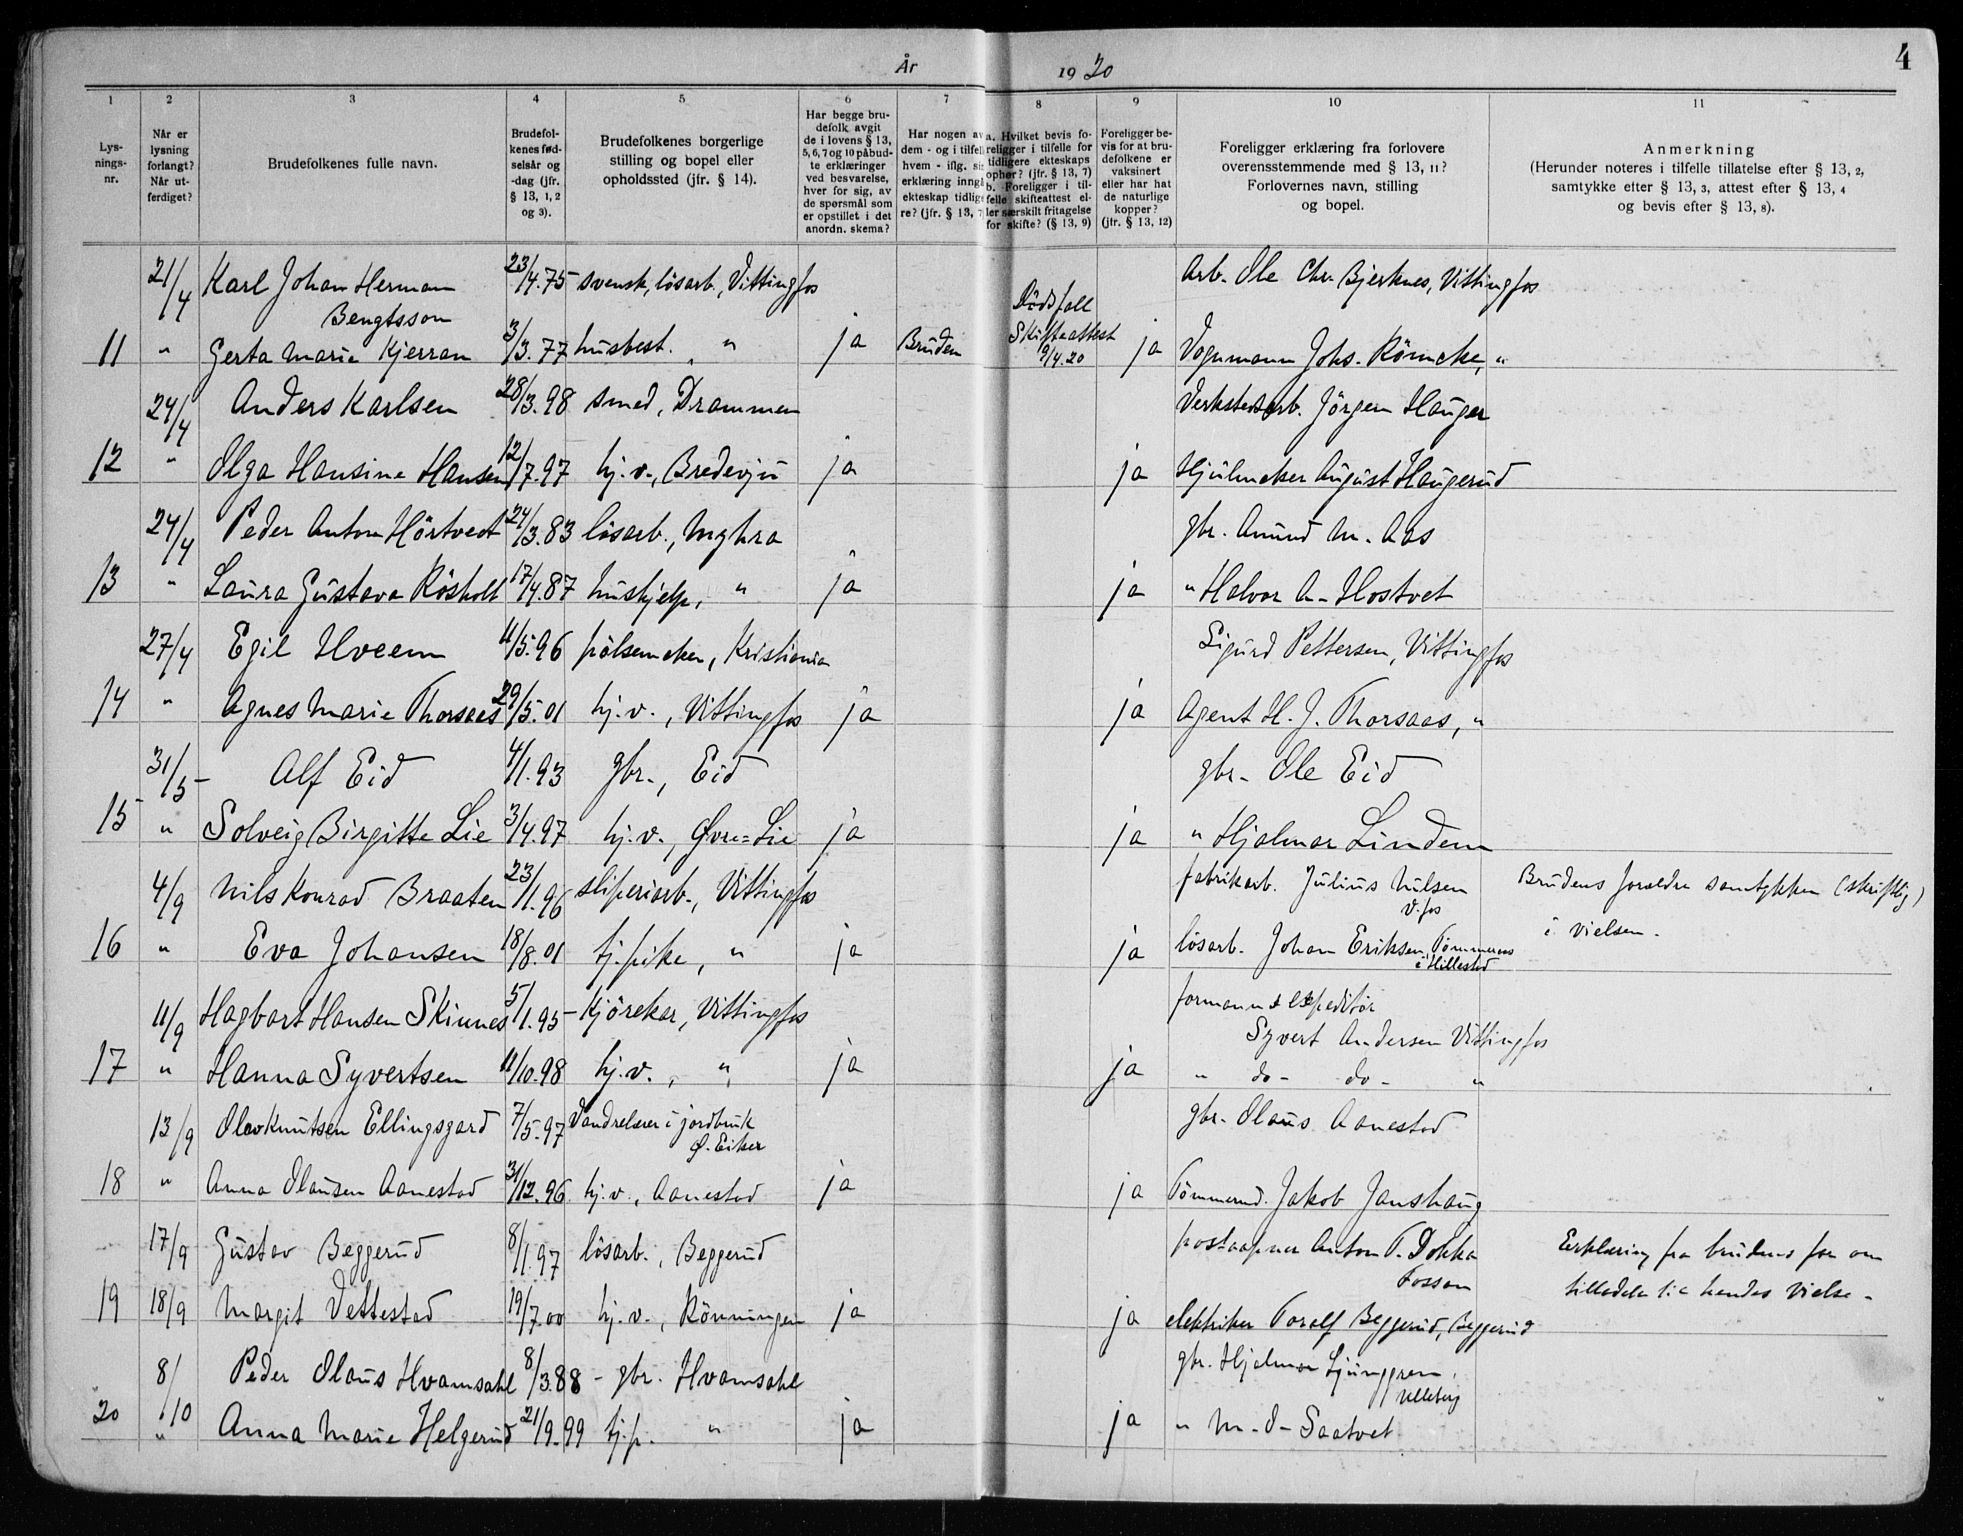 År 1920
4
1 2 3 4 5 6 7 8 9 10 11
Lysningsnr.
Når er lysning forlangt? Når utferdiget?
Brudefolkenes fulle navn.
Brudefolkenes fødselsår og -dag (jfr. § 13, 1, 2 og 3).
Brudefolkenes borgerlige stilling og bopel eller opholdssted (jfr. § 14).
Har begge brudefolk avgit de i lovens § 13, 5, 6, 7 og 10 påbudte erklæringer ved besvarelse, hver for sig, av de spørsmål som er opstillet i det anordn. skema?
Har nogen av dem - og i tilfelle hvem - iflg. sin erklæring inngått ekteskap tidligere? (jfr. § 13, 7
a. Hvilket bevis foreligger i tilfelle for tidligere ekteskaps ophør? (jfr. § 13, 7) b. Foreligger i tilfelle skifteattest eller særskilt fritagelse for skifte? (§ 13, 9)
Foreligger bevis for at brudefolkene er vaksinert eller har hat de naturlige kopper? (jfr. § 13, 12)
Foreligger erklæring fra forlovere overensstemmende med § 13, 11? Forlovernes navn, stilling og bopel.
Anmerkning (Herunder noteres i tilfelle tillatelse efter § 13, 2, samtykke efter § 13, 3, attest efter § 13, 4 og bevis efter § 13, 8).
21/4 Karl Johan Herman 23/4.75 svensk, lösarb., Vittingfos Arb. Ole Chr. Bjerknes, Vittingfos
Bengtsson Dödsfall
11 " Gerta Marie Kjerran 3/3.77 husbest. " ja Bruden Skifteattest 9/4.20 ja Vognmann Johs. Römcke, "
24/4 Anders Karlsen 28/3.98 smed, Drammen Verkstedarb. Jörgen Hauger
12 " Olga Hansine Hansen 12/7.97 hj.v., Bredevju ja ja Hjulmaker August Haugerud
24/4 Peder Anton Hörtvedt 24/3.83 lösarb., Myhra gbr. Amund M. Aas
13 " Laura Gustava Rösholt 17/4.87 hushjelp, " ja ja " Halvor A. Hostvet
27/4 Egil Hveem 11/5.96 pölsemaker, Kristiania Sigurd Pettersen, Vittingfos
14 " Agnes Marie Thorsaas 29/5.01 hj.v., Vittingfos ja ja Agent H. J. Thorsaas, "
31/5 Alf Eid 4/1.93 gbr., Eid gbr. Ole Eid
15 " Solveig Birgitte Lie 3/4.97 hj.v., Övre=Lie ja ja " Hjalmar Linden
4/9 Nils Konrad Braaten 23/1.96 sliperiarb., Vittingfos fabrikarb. Julius Nilsen V.fos Brudens foreldre samtykker (skriftlig)
16 " Eva Johansen 18/8.01 tj.pike, " ja ja lösarb. Johan Eriksen, Tömmeraas i Hillestad i vielsen.
11/9 Hagbart Hansen Skinnes 5/1.95 Kjörekar, Vittingfos formann & expeditör
Syvert Andersen Vittingfos
17 " Hanna Syvertsen 11/10.98 hj.v., " ja ja " do - do - "
13/9 Olav Knutsen Ellingsgard 7/5.97 Vandrelærer i jordbruk Ø. Eiker gbr. Olaus Aanestad
18 " Anna Olausen Aanestad 31/12.96 hj.v., Aanestad ja ja Tömmermd. Jakob Janshaug
17/9 Gustav Beggerud 8/1.97 lösarb., Beggerud postaapner Anton T. Dokka Fossan Erklæring fra brudens far om
19 18/9 Margit Vettestad 19/7.00 hj.v., Rönningen ja ja elektriker Toralf Beggerud, Beggerud tilladelse til hendes vielse.
8/10 Peder Olaus Hvamsahl 8/3.88 - gbr. Hvamsahl gbr. Hjalmar Ljunggren, Ulleberg
20 " Anna Marie Helgerud 21/9.99 tj.p. " ja ja " M. O. Saatvet